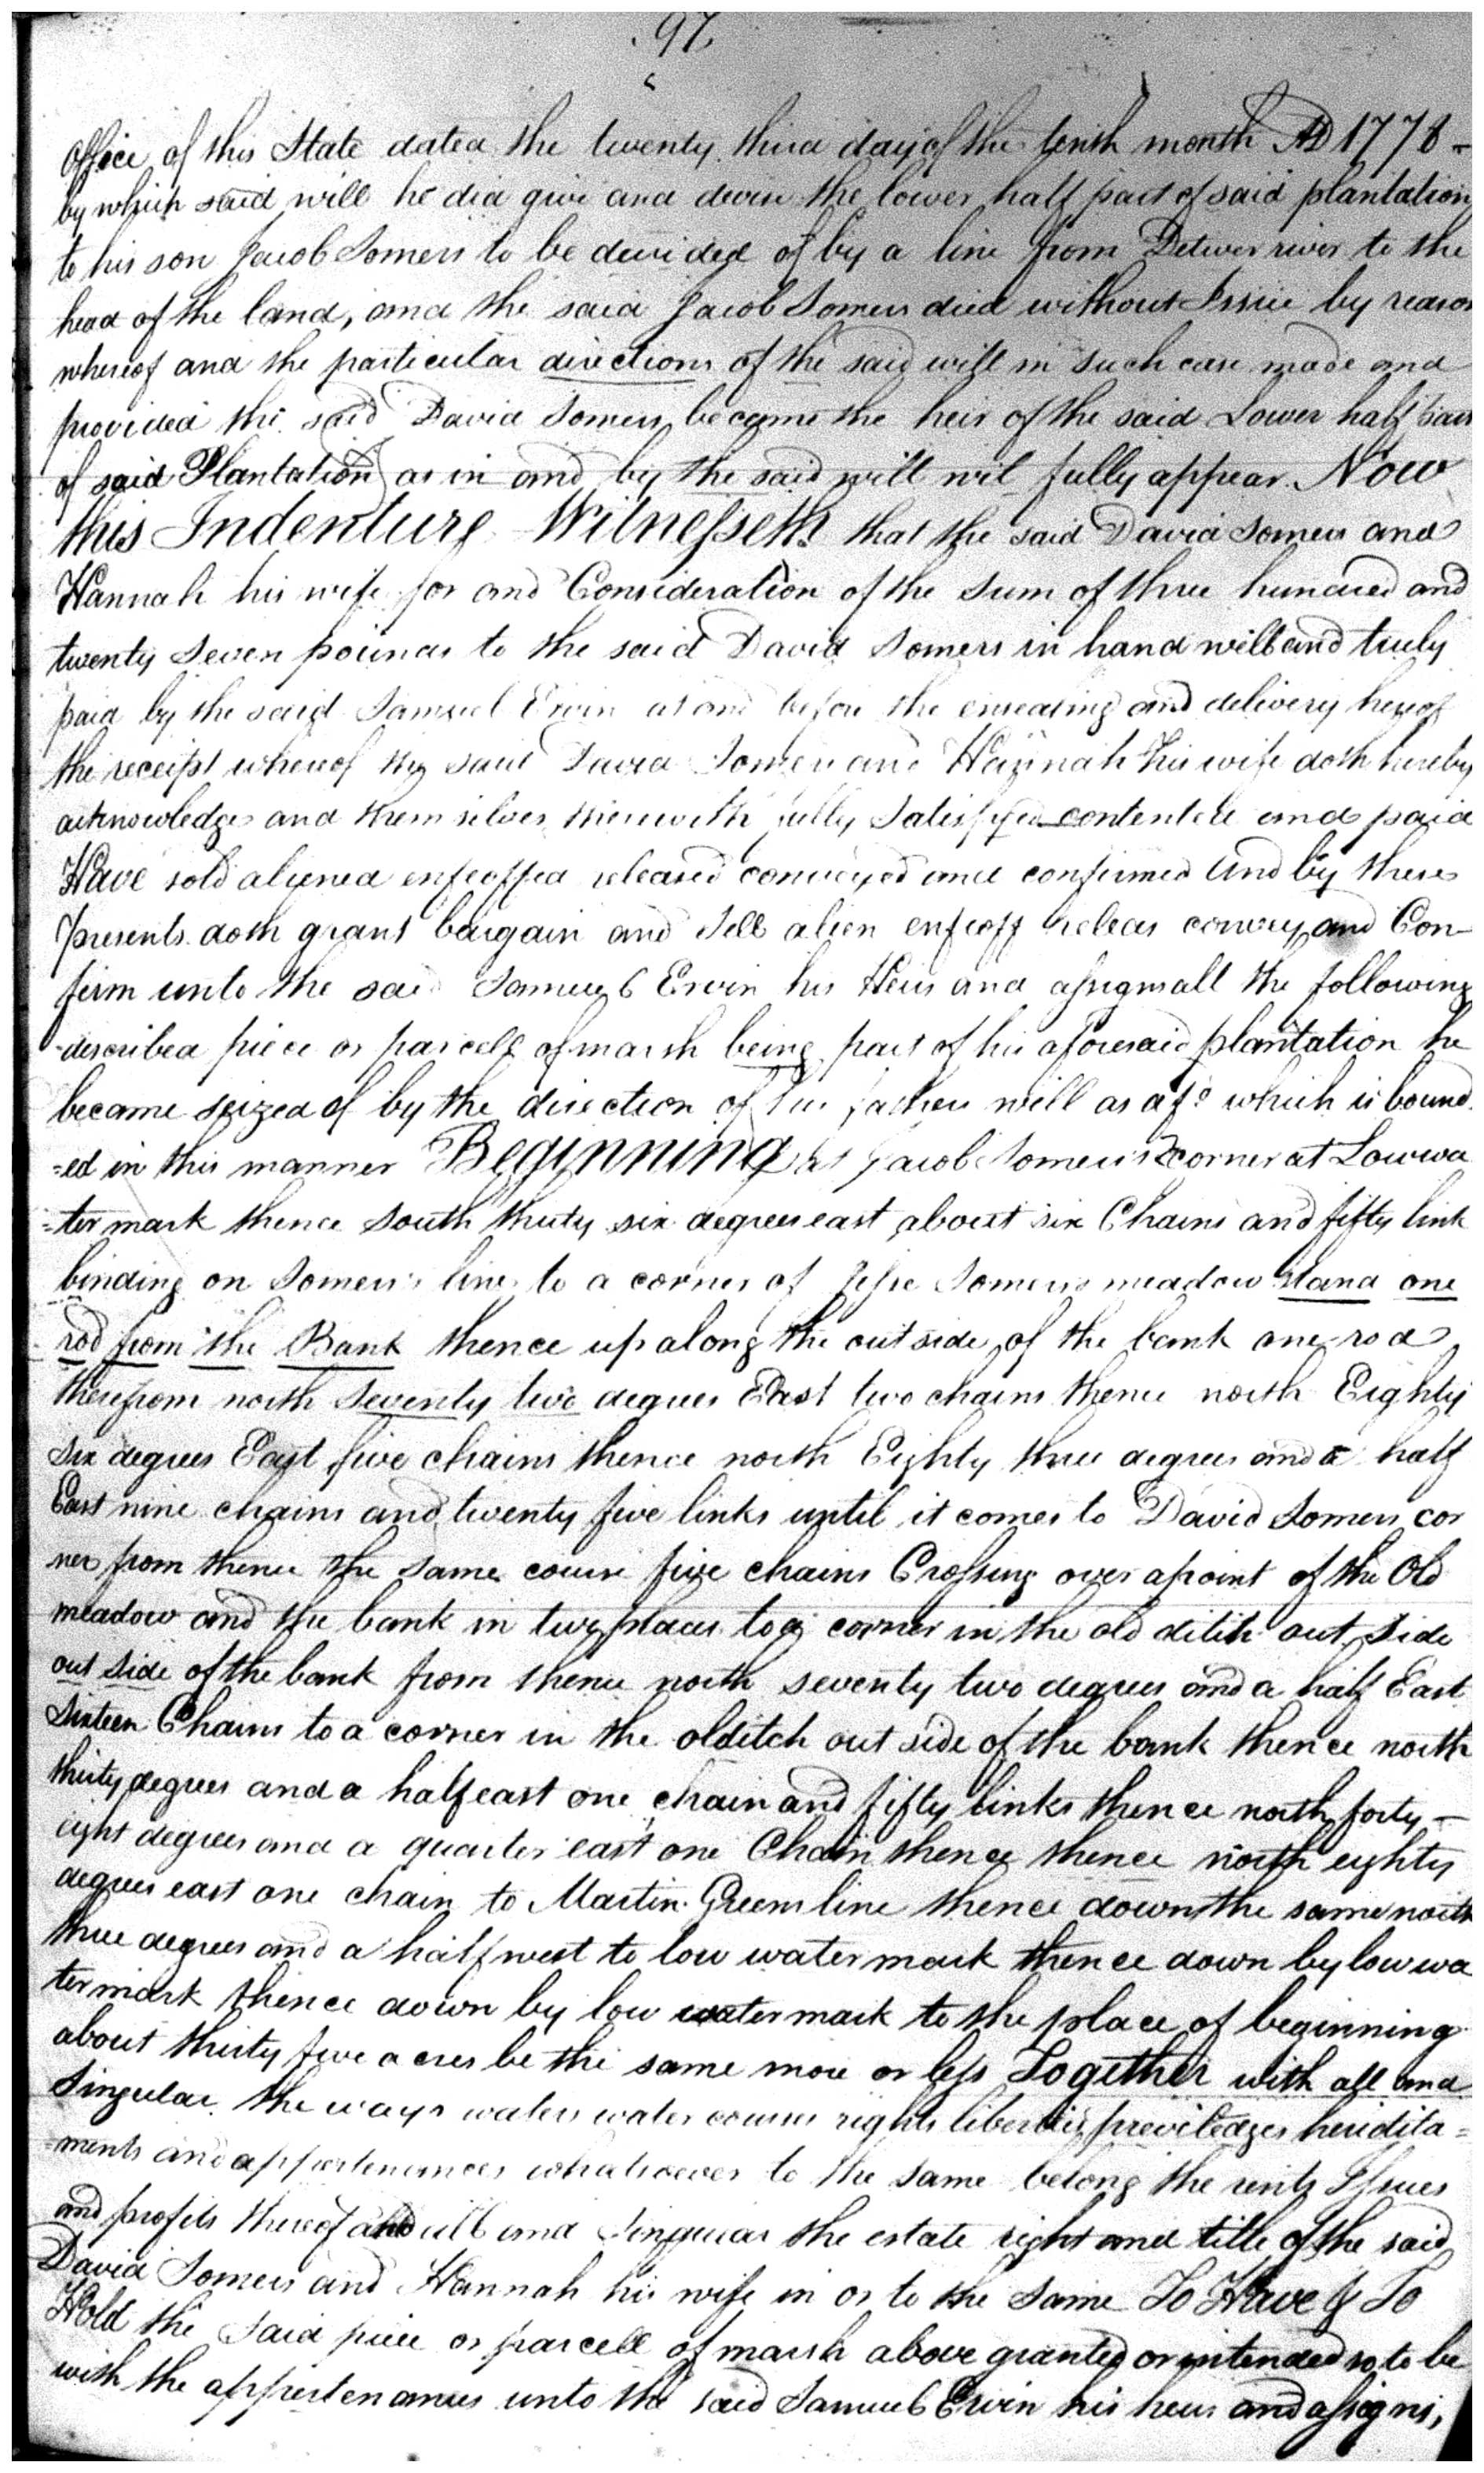 97
office of this State dated the twenty third day of the tenth month AD 1778 -
by which said will he did give and devise the lower half part of said plantation
to his son Jacob Somers to be devided of by a line from Delwer river to the
head of the land, and the said Jacob Somers died without Issue by reason
whereof and the particular directions of the said will in such case made and
provided the said David Somers became the heir of the said Lower half part
of said Plantation as in and by the said will wil fully appear Now
this Indenture Witnesseth that the said David Somers and
Hannah his wife for and Consideration of the Sum of three hundred and
twenty Seven pounds to the said David Somers in hand well and truly
paid by the said Samuel Ervin at and before the ensealing and delivery hereof
the receipt whereof the said David Somers and Hannah his wife doth hereby
acknowledge and themselves therewith fully Satisfyed contented and paid
Have sold aliened enfeoffed released conveyed and confirmed And by these
presents doth grant bargain and Sell alien enfeoff releas convey and Con-
firm unto the said Samuel Ervin his Heirs and assigns all the following
-described piece or parcell of marsh being part of his aforesaid plantation he
became seized of by the direction of his fathers will as afd which is bound
=ed in this manner Beginning at Jacob Somers's corner at Lowwa
=ter mark thence South thirty six degrees east about six Chains and fifty link
binding on Somers's line to a corner of Jesse Somers meadow stand one
rod from the Bank thence up along the out side of the bank one rod
therefrom north Seventy two degrees East two chains thence north Eighty
Six degrees East five chains thence north Eighty three degrees and a half
East nine chains and twenty five links until it comes to David Somers cor
ner from thence the same course five chains Crossing over a point of the Old
meadow and the bank in two places to a corner in the old ditch out side
out side of the bank from thence north seventy two degrees and a half East
Sixteen Chains to a corner in the olditch out side of the bank thence north
thirty degrees and a half east one chain and fifty links thence north forty -
eight degrees and a quarter east one Chain thence thence north eighty
degrees east one chain to Martin Greens line thence down the same north
three degrees and a half west to low water mark thence down by low wa
ter mark thence down by low water mark to the place of beginning
about thirty five acres be the same more or less Together with all and
Singular the ways waters water courses rights liberties previledges heridita=
=ments and appertenances whatsoever to the same belong the rents Issues
and profits thereof and all and Singular the estate right and title of the said
David Somers and Hannah his wife in or to the Same To Have & To
Hold the Said piece or parcell of marsh above granted or intended so to be
with the appertenances unto the said Samuel Ervin his heirs and assigns,